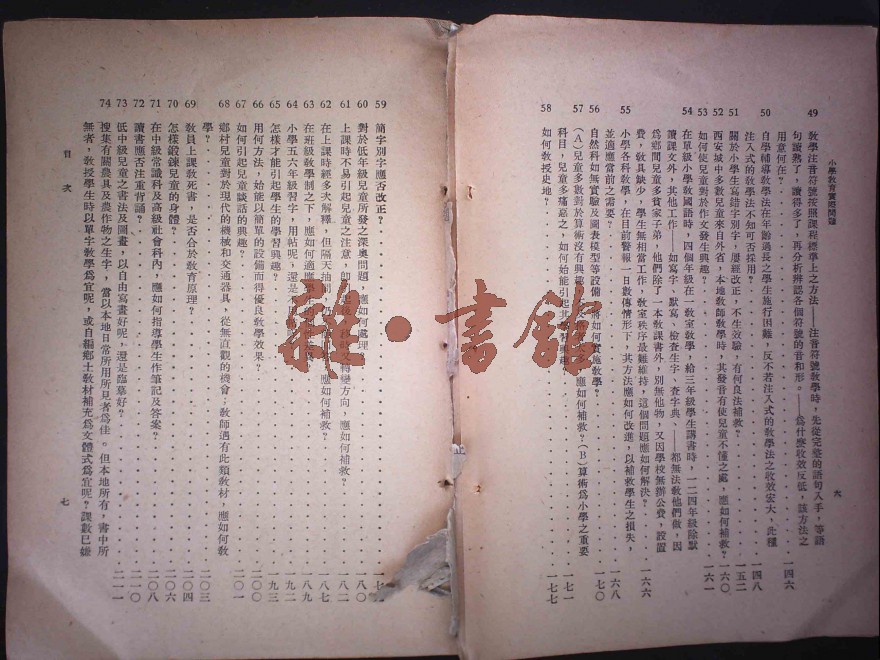 小學教育實際問題
49 教學注音符號按照課程標準上之方法——注音符號教學時，先從完整的語句入手，等語
句讀熟了，讀得多了，再分析辨認各個符號的音和形。——爲什麼收效反低，該方法之
用意何在？ 一四六
50 自學輔導教學法在年齡過長之學生施行困難，反不若注入式的教學法之收效宏大，此種
注入式的教學法不知可否採用？ 一四八
51 關於小學生寫錯字別字，屢經改正，不生效驗，有何良法補救？ 一五二
52 西安城中多數兒童來自外省，本地教師教學時，其發音有使兒童不懂之處，應如何補救？ 一六〇
53 如何使兒童對於作文發生興趣？ 一六一
54 在單級小學教國語時，四個年級在一教室教學，給三年級學生講書時，一二四年級除默
讀課文外，其他工作——如寫字、默寫、檢查生字、查字典、——都無法教他們做，因
爲鄉間兒童多貧家子弟，他們除了一本教課書外，別無他物，又因學校無辦公費，設置
費，教具缺少，學生無相當工作，教室秩序最難維持，這個問題應如何解決？ 一六六
55 小學各科教學，在目前警報一日數傳情形下，其方法應如何改進，以補救學生之損失，
並適應當前之需要？ 一六八
56 自然科如無實驗及圖表模型等設備，將如何實施教學？ 一七〇
57 (A)兒童多數對於算術沒有興趣，應如何補救？(B)算術爲小學之重要
科目，兒童多痛惡之，如何始能引起其學習興趣？ 一七一
58 如何教授史地？ 一七七
六
59 簡字別字應否改正？
60 對於低年級兒童所發之深奧問題，應如何處理？ 一八〇
61 上課時不易引起兒童之注意，轉變方向，應如何補救？
62 在上課時經多次解釋，但隔天抽問，應如何補救？ 一八七
63 在班級教學制之下，應如何適應學 一八九
64 小學五六年級習字，用帖呢，還是 一九二
65 怎樣才能引起學生的學習興趣？ 一九三
66 用何方法，始能以簡單的設備而得優良教學效果？ 二〇〇
67 如何引起兒童談話的興趣？ 二〇一
68 鄉村兒童對於現代的機械和交通器具，從無直觀的機會，教師遇有此類教材，應如何教
學？ 二〇三
69 教員上課教死書，是否合於教育原理？ 二〇四
70 怎樣鍛鍊兒童的身體？ 二〇六
71 在中級常識科及高級社會科內，應如何指導學生作筆記及答案？ 二〇八
72 讀書應否注重背誦？ 二一〇
73 低中級兒童之書法及圖畫，以自由寫畫好呢，還是臨摹好？ 二一一
74 搜集有關農具及農作物之生字，當以本地日常所用所見者爲佳。但本地所有，書中所
無者，教授學生時以單字教學爲宜呢，或自編鄉土教材補充爲文體式爲宜呢？課數已嫌
目次
七
雅·書館